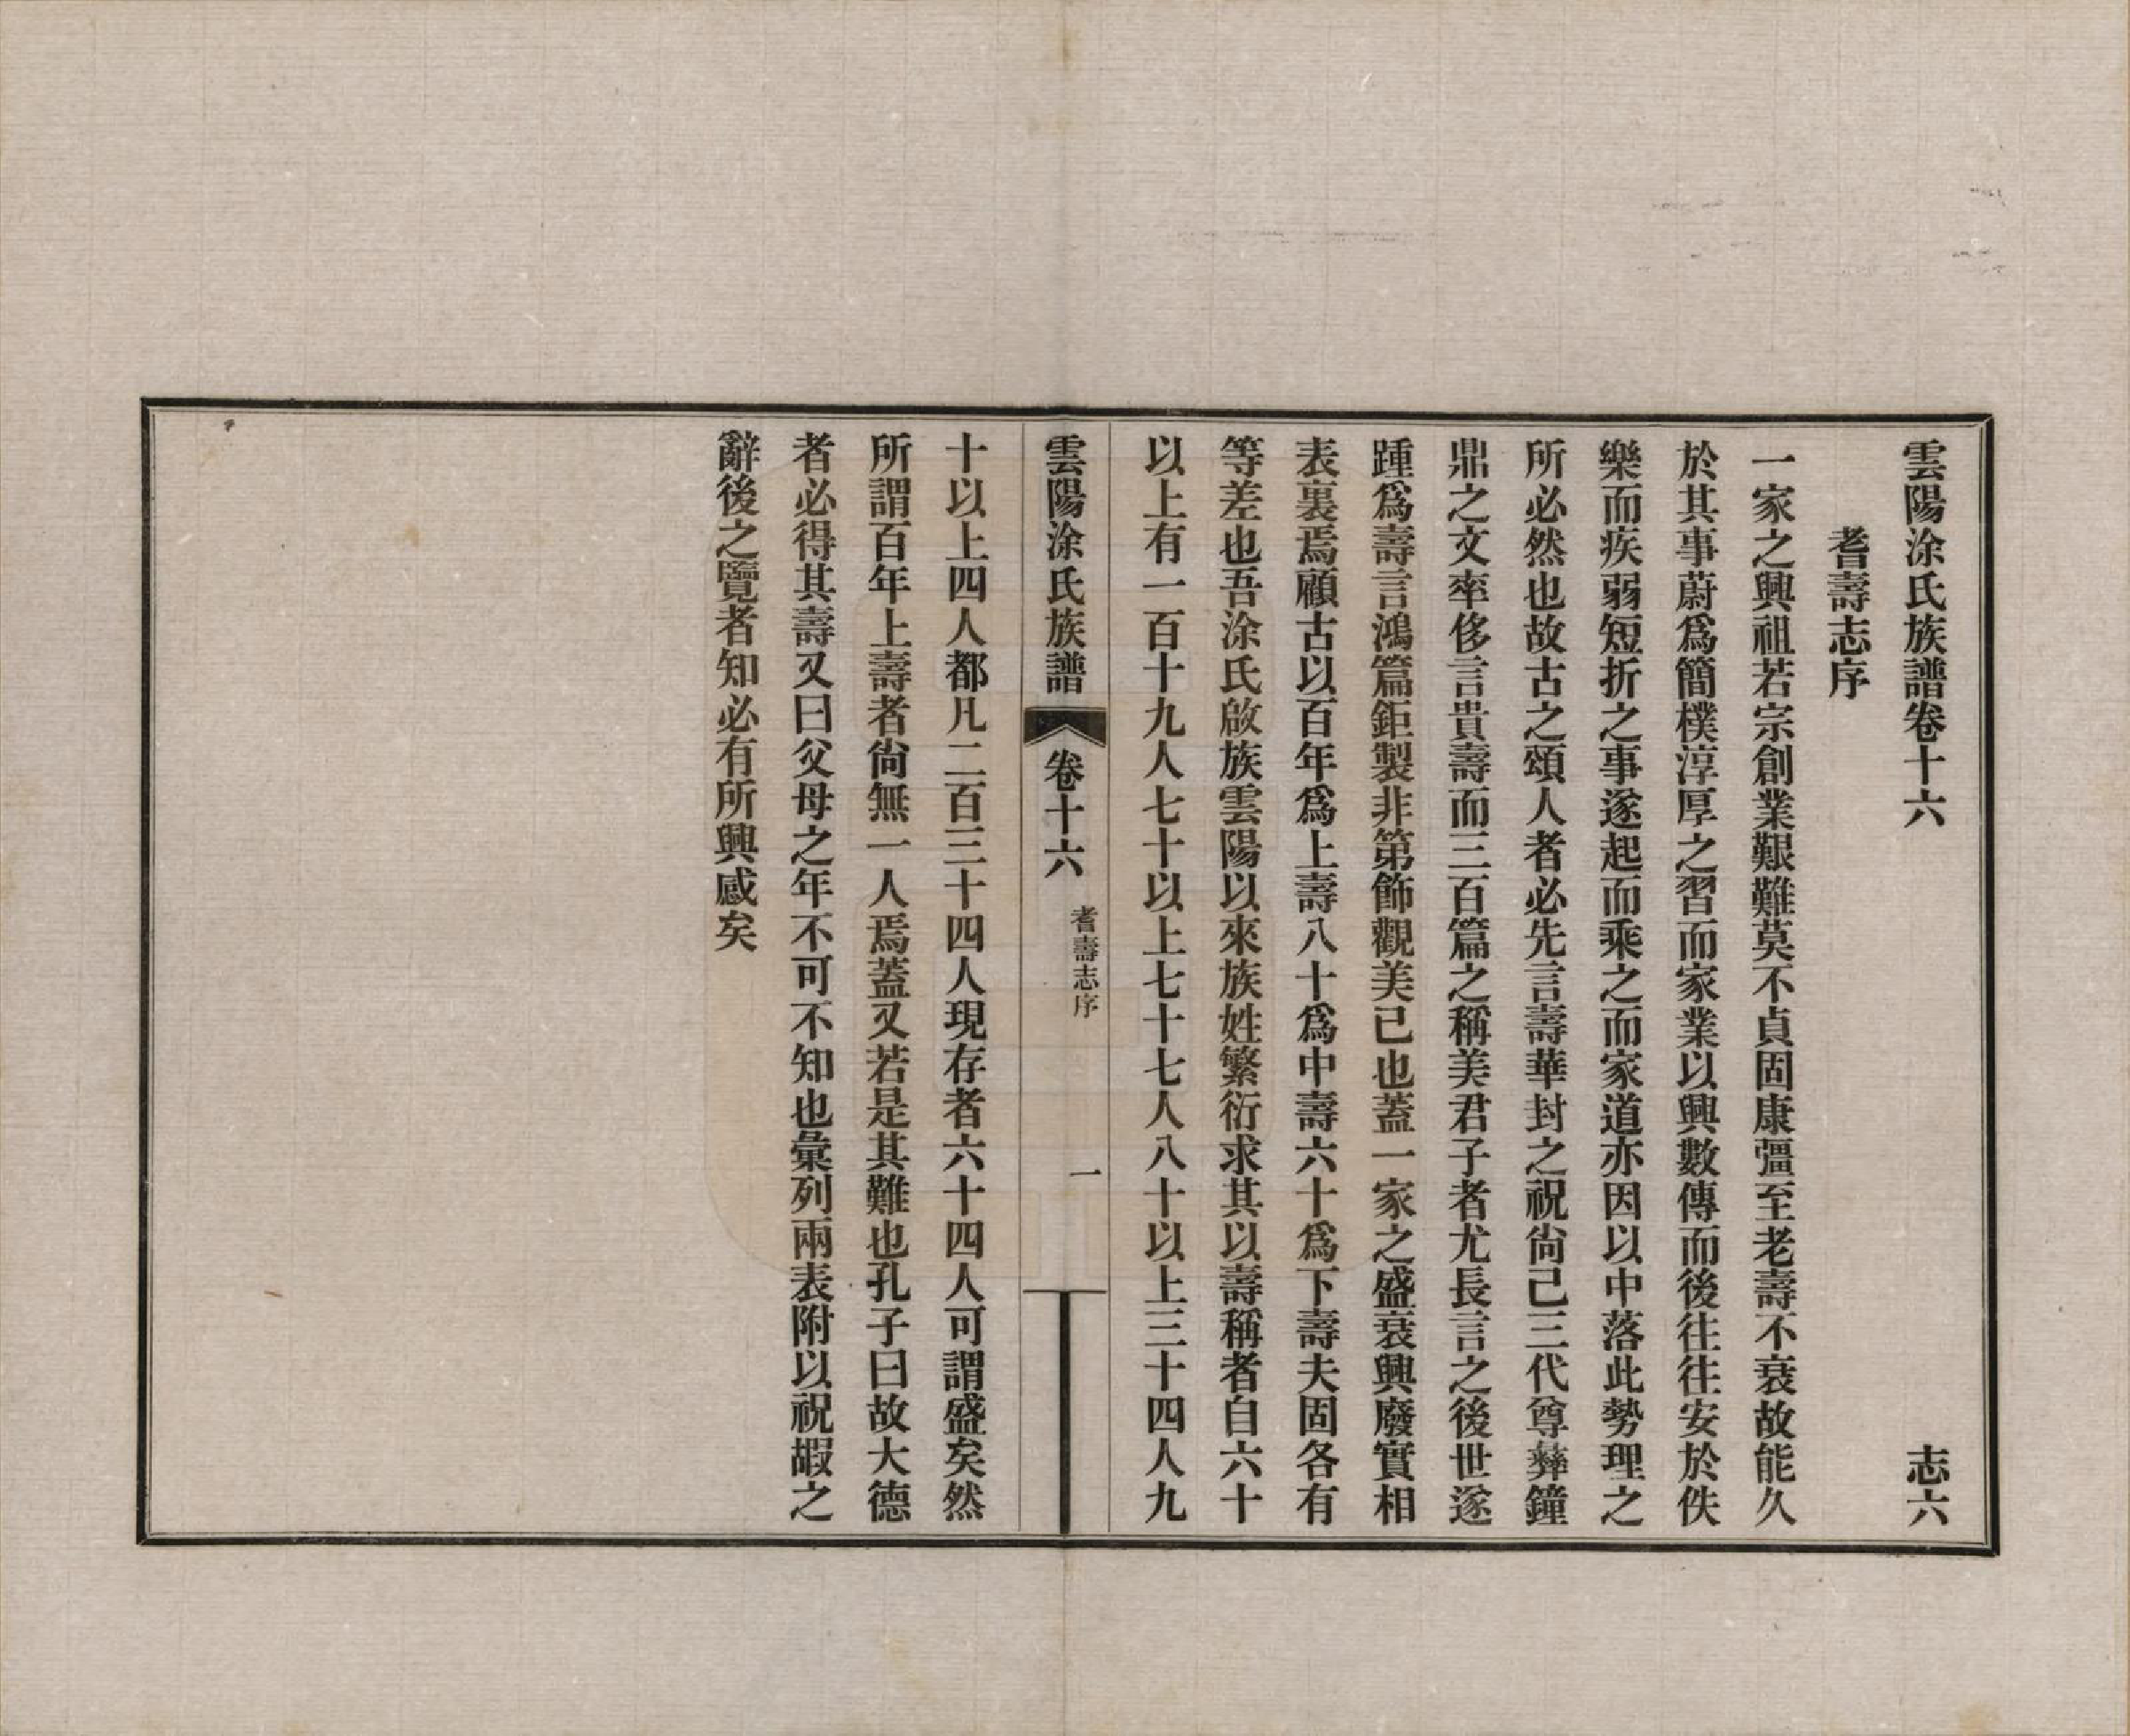 雲陽涂氏族譜卷十六
志六
耆壽志序
一家之興祖若宗創業艱難莫不貞固康彊至老壽不衰故能久
於其事蔚爲簡樸淳厚之習而家業以興數傳而後往往安於佚
樂而疾弱短折之事遂起而乘之而家道亦因以中落此勢理之
所必然也故古之頌人者必先言壽華封之祝尙已三代尊彝鐘
鼎之文率侈言貴壽而三百篇之稱美君子者尤長言之後世遂
踵爲壽言鴻篇鉅製非第飾觀美已也蓋一家之盛衰興廢實相
表裏焉顧古以百年爲上壽八十爲中壽六十爲下壽夫固各有
等差也吾涂氏啟族雲陽以來族姓繁衍求其以壽稱者自六十
以上有一百十九人七十以上七十七人八十以上三十四人九
雲陽涂氏族譜
卷十六
耆壽志序
一
十以上四人都凡二百三十四人現存者六十四人可謂盛矣然
所謂百年上壽者尙無一人焉蓋又若是其難也孔子曰故大德
者必得其壽又曰父母之年不可不知也彙列兩表附以祝嘏之
辭後之覽者知必有所興感矣